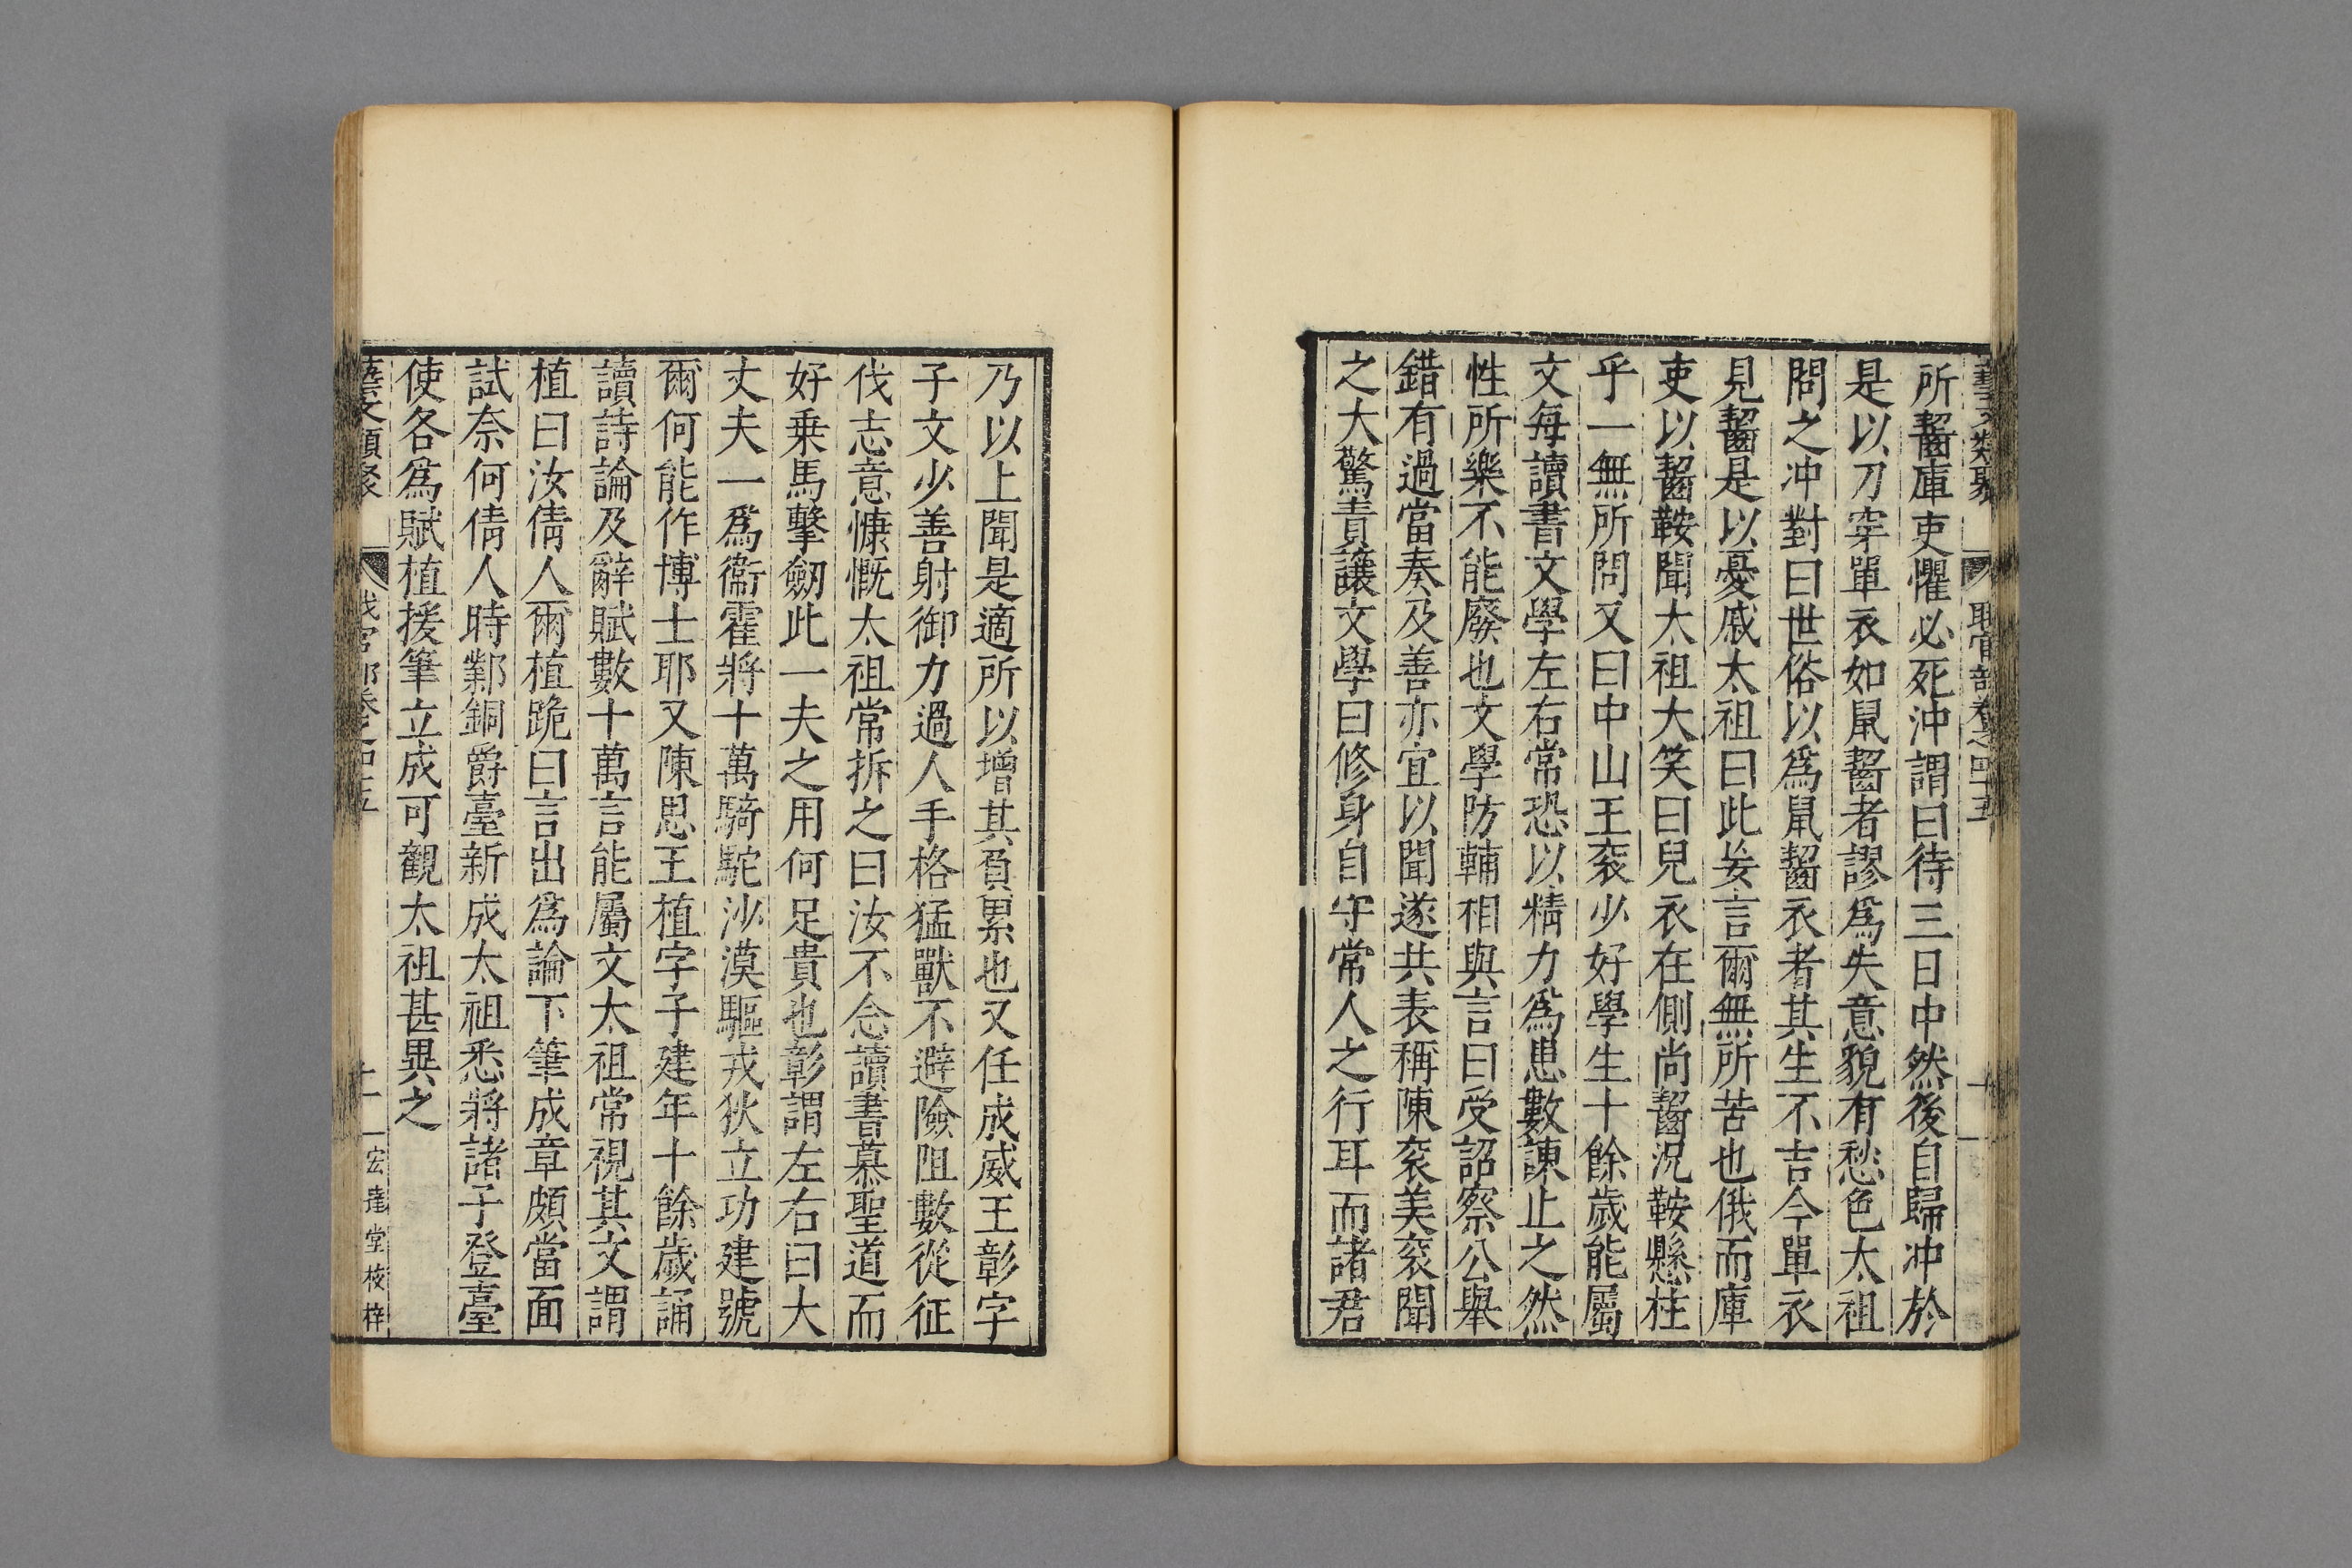 藝文類聚 職官部卷之四十五 十
所齧庫吏懼必死沖謂曰待三日中然後自歸冲於
是以刀穿單衣如鼠齧者謬爲失意貌有愁色太祖
問之冲對曰世俗以爲鼠齧衣者其生不吉今單衣
見齧是以憂戚太祖曰此妄言爾無所苦也俄而庫
吏以齧鞍聞太祖大笑曰兒衣在側尚齧況鞍懸柱
乎一無所問又曰中山王衮少好學生十餘歲能屬
文每讀書文學左右常恐以精力爲患數諫止之然
性所樂不能廢也文學防輔相與言曰受詔察公舉
錯有過當奏及善亦宜以聞遂共表稱陳衮美衮聞
之大驚責讓文學曰修身自守常人之行耳而諸君
乃以上聞是適所以增其負累也又任成威王彰字
子文少善射御力過人手格猛獸不避險阻數從征
伐志意慷慨太祖常拆之曰汝不念讀書慕聖道而
好乗馬擊劒此一夫之用何足貴也彰謂左右曰大
丈夫一爲衞霍將十萬騎駝沙漠驅戎狄立功建號
爾何能作博士耶又陳思王植字子建年十餘歲誦
讀詩論及辭賦數十萬言能屬文太祖常視其文謂
植曰汝倩人爾植跪曰言出爲論下筆成章頗當面
試奈何倩人時鄴銅爵臺新成太祖悉將諸子登臺
使各爲賦植援筆立成可觀太祖甚異之
藝文類聚 職官部卷之四十五 十一 宏達堂校梓